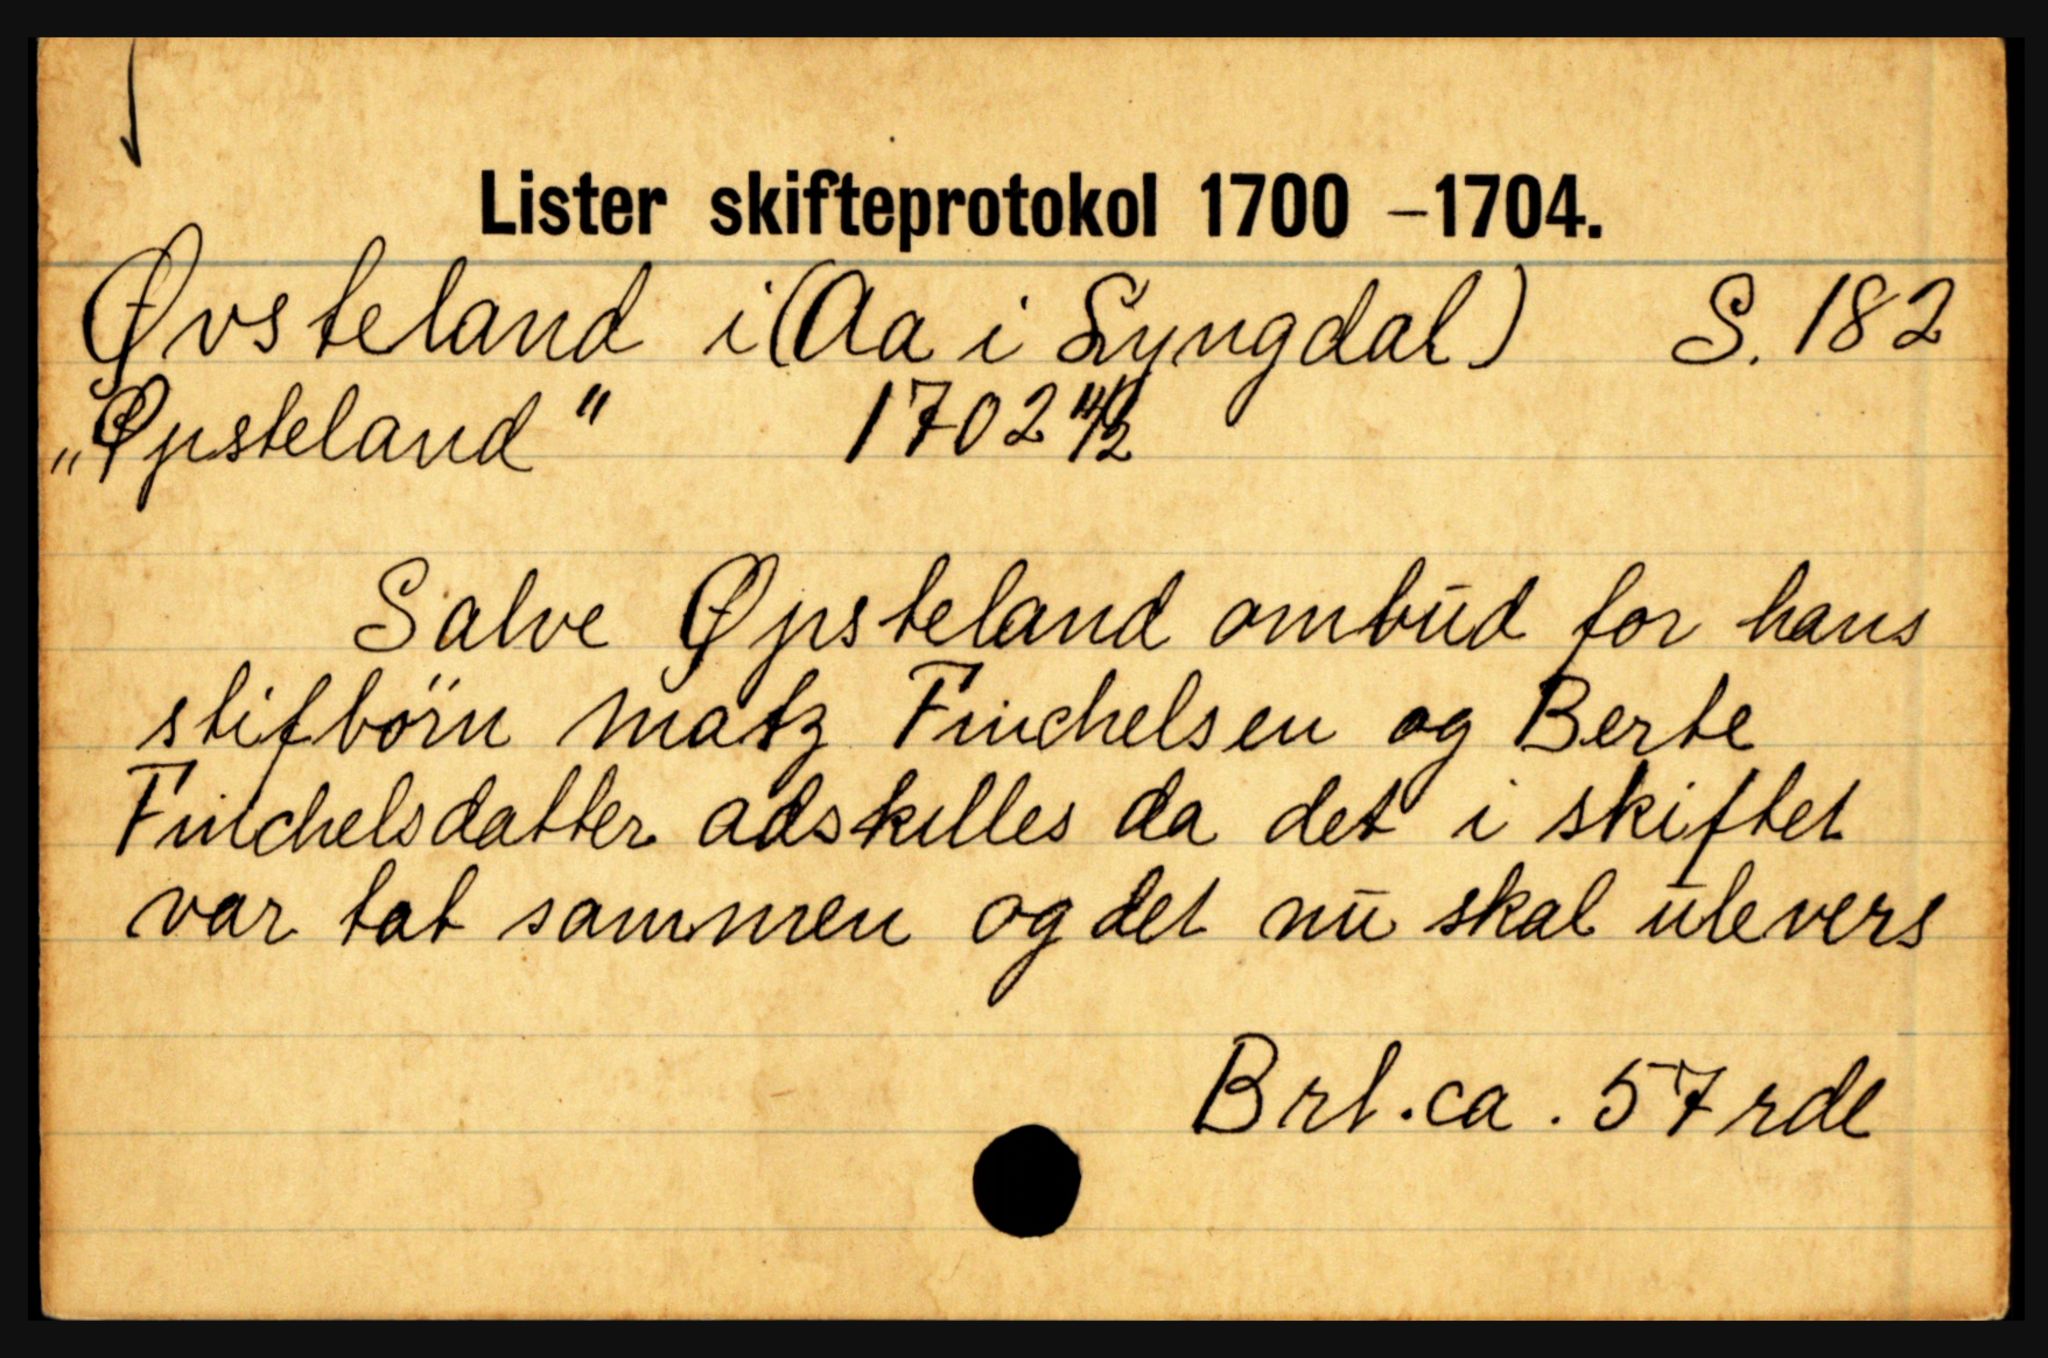 Lister skifteprotokol 1700 –1704.
Øvsteland i (Aa i Lyngdal) S. 182
„Øpsteland" 1702 14/2
Salve Øpsteland ombud for hans
stifbörn Matz Finchelsen og Berte
Finchelsdatter adskilles da det i skiftet
var tat sammen og det nu skal ulevers
Brl. ca. 57 rdl